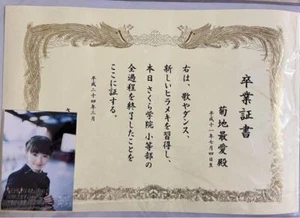 卒業証書
菊地最愛殿
平成十一年七月四日生
右は、歌やダンス、
新しいヒラメキを習得し、
本日 さくら学院 小等部の
全過程を終了したことを
ここに証する。
平成二十四年三月
さ